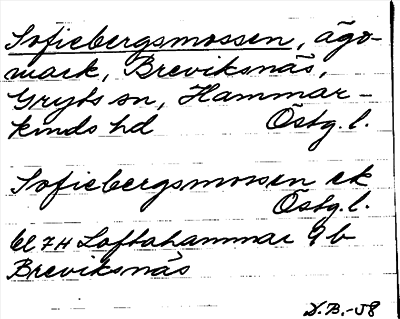 Sofiebergsmossen, ägo-
mark, Breviksnäs,
Gryts sn, Hammar-
kinds hd Östg. l.
Sofiebergsmossen ek
Östg. l.
bl 7H Loftahammar 9b
Breviksnäs
D.B.-58